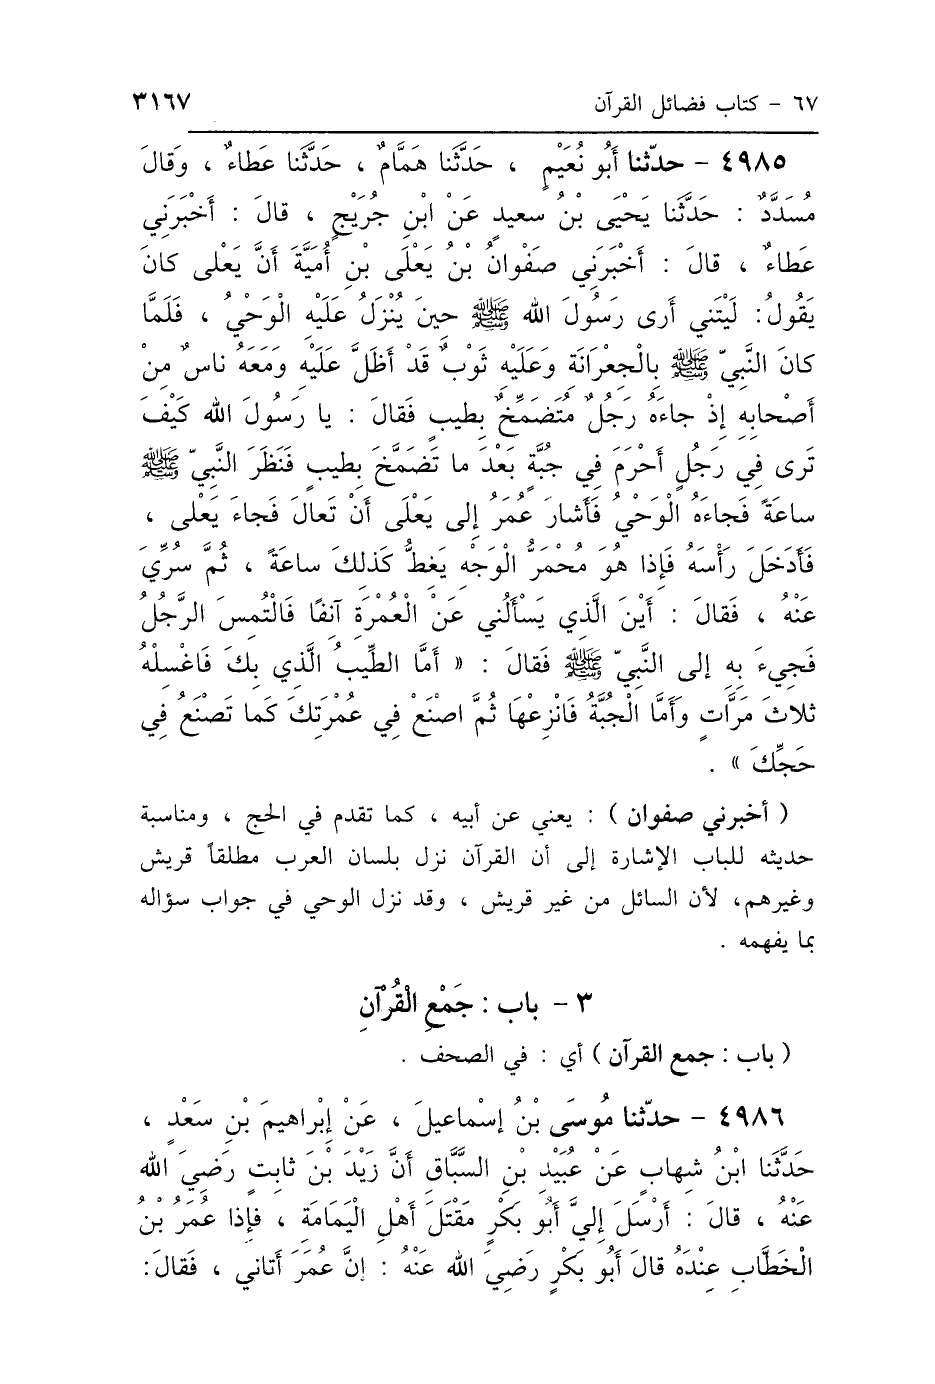 ٦٧ - كتاب فضائل القرآن ٣١٦٧
٤٩٨٥ - حدّثنا أَبُو نُعَيْمٍ ، حَدَّثَنا هَمَّامٌ ، حَدَّثَنا عَطاءٌ ، وَقالَ
مُسَدَّدٌ : حَدَّثَنا يَحْيَى بْنُ سعيدٍ عَنْ ابْنِ جُرَيْجٍ ، قالَ : أَخْبَرَنِي
عَطاءٌ ، قالَ : أَخْبَرَنِي صَفْوانُ بْنُ يَعْلَى بْنِ أُمَيَّةَ أَنَّ يَعْلى كانَ
يَقُولُ: لَيْتَني أَرى رَسُولَ الله ﷺ حينَ يُنْزَلُ عَلَيْهِ الْوَحْيُ ، فَلَمَّا
كانَ النَّبِيّ ﷺ بِالْجِعْرَانَةِ وَعَلَيْهِ ثَوْبٌ قَدْ أَظَلَّ عَلَيْهِ وَمَعَهُ ناسٌ مِنْ
أَصْحابِهِ إِذْ جاءَهُ رَجُلٌ مُتَضَمِّخٌ بِطيبٍ فَقالَ : يا رَسُولَ الله كَيْفَ
تَرى فِي رَجُلٍ أَحْرَمَ فِي جُبَّةٍ بَعْدَ ما تَضَمَّخَ بِطيبٍ فَنَظَرَ النَّبِيّ ﷺ
ساعَةً فَجاءَهُ الْوَحْيُ فَأَشارَ عُمَرُ إلى يَعْلَى أَنْ تَعالَ فَجاءَ يَعْلى ،
فَأَدْخَلَ رَأْسَهُ فَإِذا هُوَ مُحْمَرُّ الْوَجْهِ يَغِطُّ كَذلِكَ ساعَةً ، ثُمَّ سُرِّيَ
عَنْهُ ، فَقالَ : أَيْنَ الَّذِي يَسْأَلُنِي عَنْ الْعُمْرَةِ آنفًا فَالْتُمِسَ الرَّجُلُ
فَجِيءَ بِهِ إلى النَّبِيّ ﷺ فَقالَ : « أَمَّا الطِّيبُ الَّذي بِكَ فَاغْسِلْهُ
ثَلاثَ مَرَّاتٍ وَأَمَّا الْجُبَّةُ فَانْزِعْهَا ثُمَّ اصْنَعْ فِي عُمْرَتِكَ كَما تَصْنَعُ فِي
حَجِّكَ » .
( أخبرني صفوان ) : يعني عن أبيه ، كما تقدم في الحج ، ومناسبة
حديثه للباب الإشارة إلى أن القرآن نزل بلسان العرب مطلقاً قريش
وغيرهم، لأن السائل من غير قريش ، وقد نزل الوحي في جواب سؤاله
بما يفهمه .
٣ - باب : جَمْعِ الْقُرْآنِ
( باب : جمع القرآن ) أي : في الصحف .
٤٩٨٦ - حدّثنا مُوسَى بْنُ إسْماعيلَ ، عَنْ إِبْراهِيمَ بْنِ سَعْدٍ ،
حَدَّثَنا ابْنُ شهابٍ عَنْ عُبَيْدِ بْنِ السَّبَّاقِ أَنَّ زَيْدَ بْنَ ثابِتٍ رَضِيَ الله
عَنْهُ ، قالَ : أَرْسَلَ إِلَيَّ أَبُو بَكْرٍ مَقْتَلَ أَهْلِ الْيَمَامَةِ ، فَإِذا عُمَرُ بْنُ
الْخَطَّابِ عِنْدَهُ قالَ أَبُو بَكْرٍ رَضِيَ الله عَنْهُ : إِنَّ عُمَرَ أَتاني ، فَقالَ: